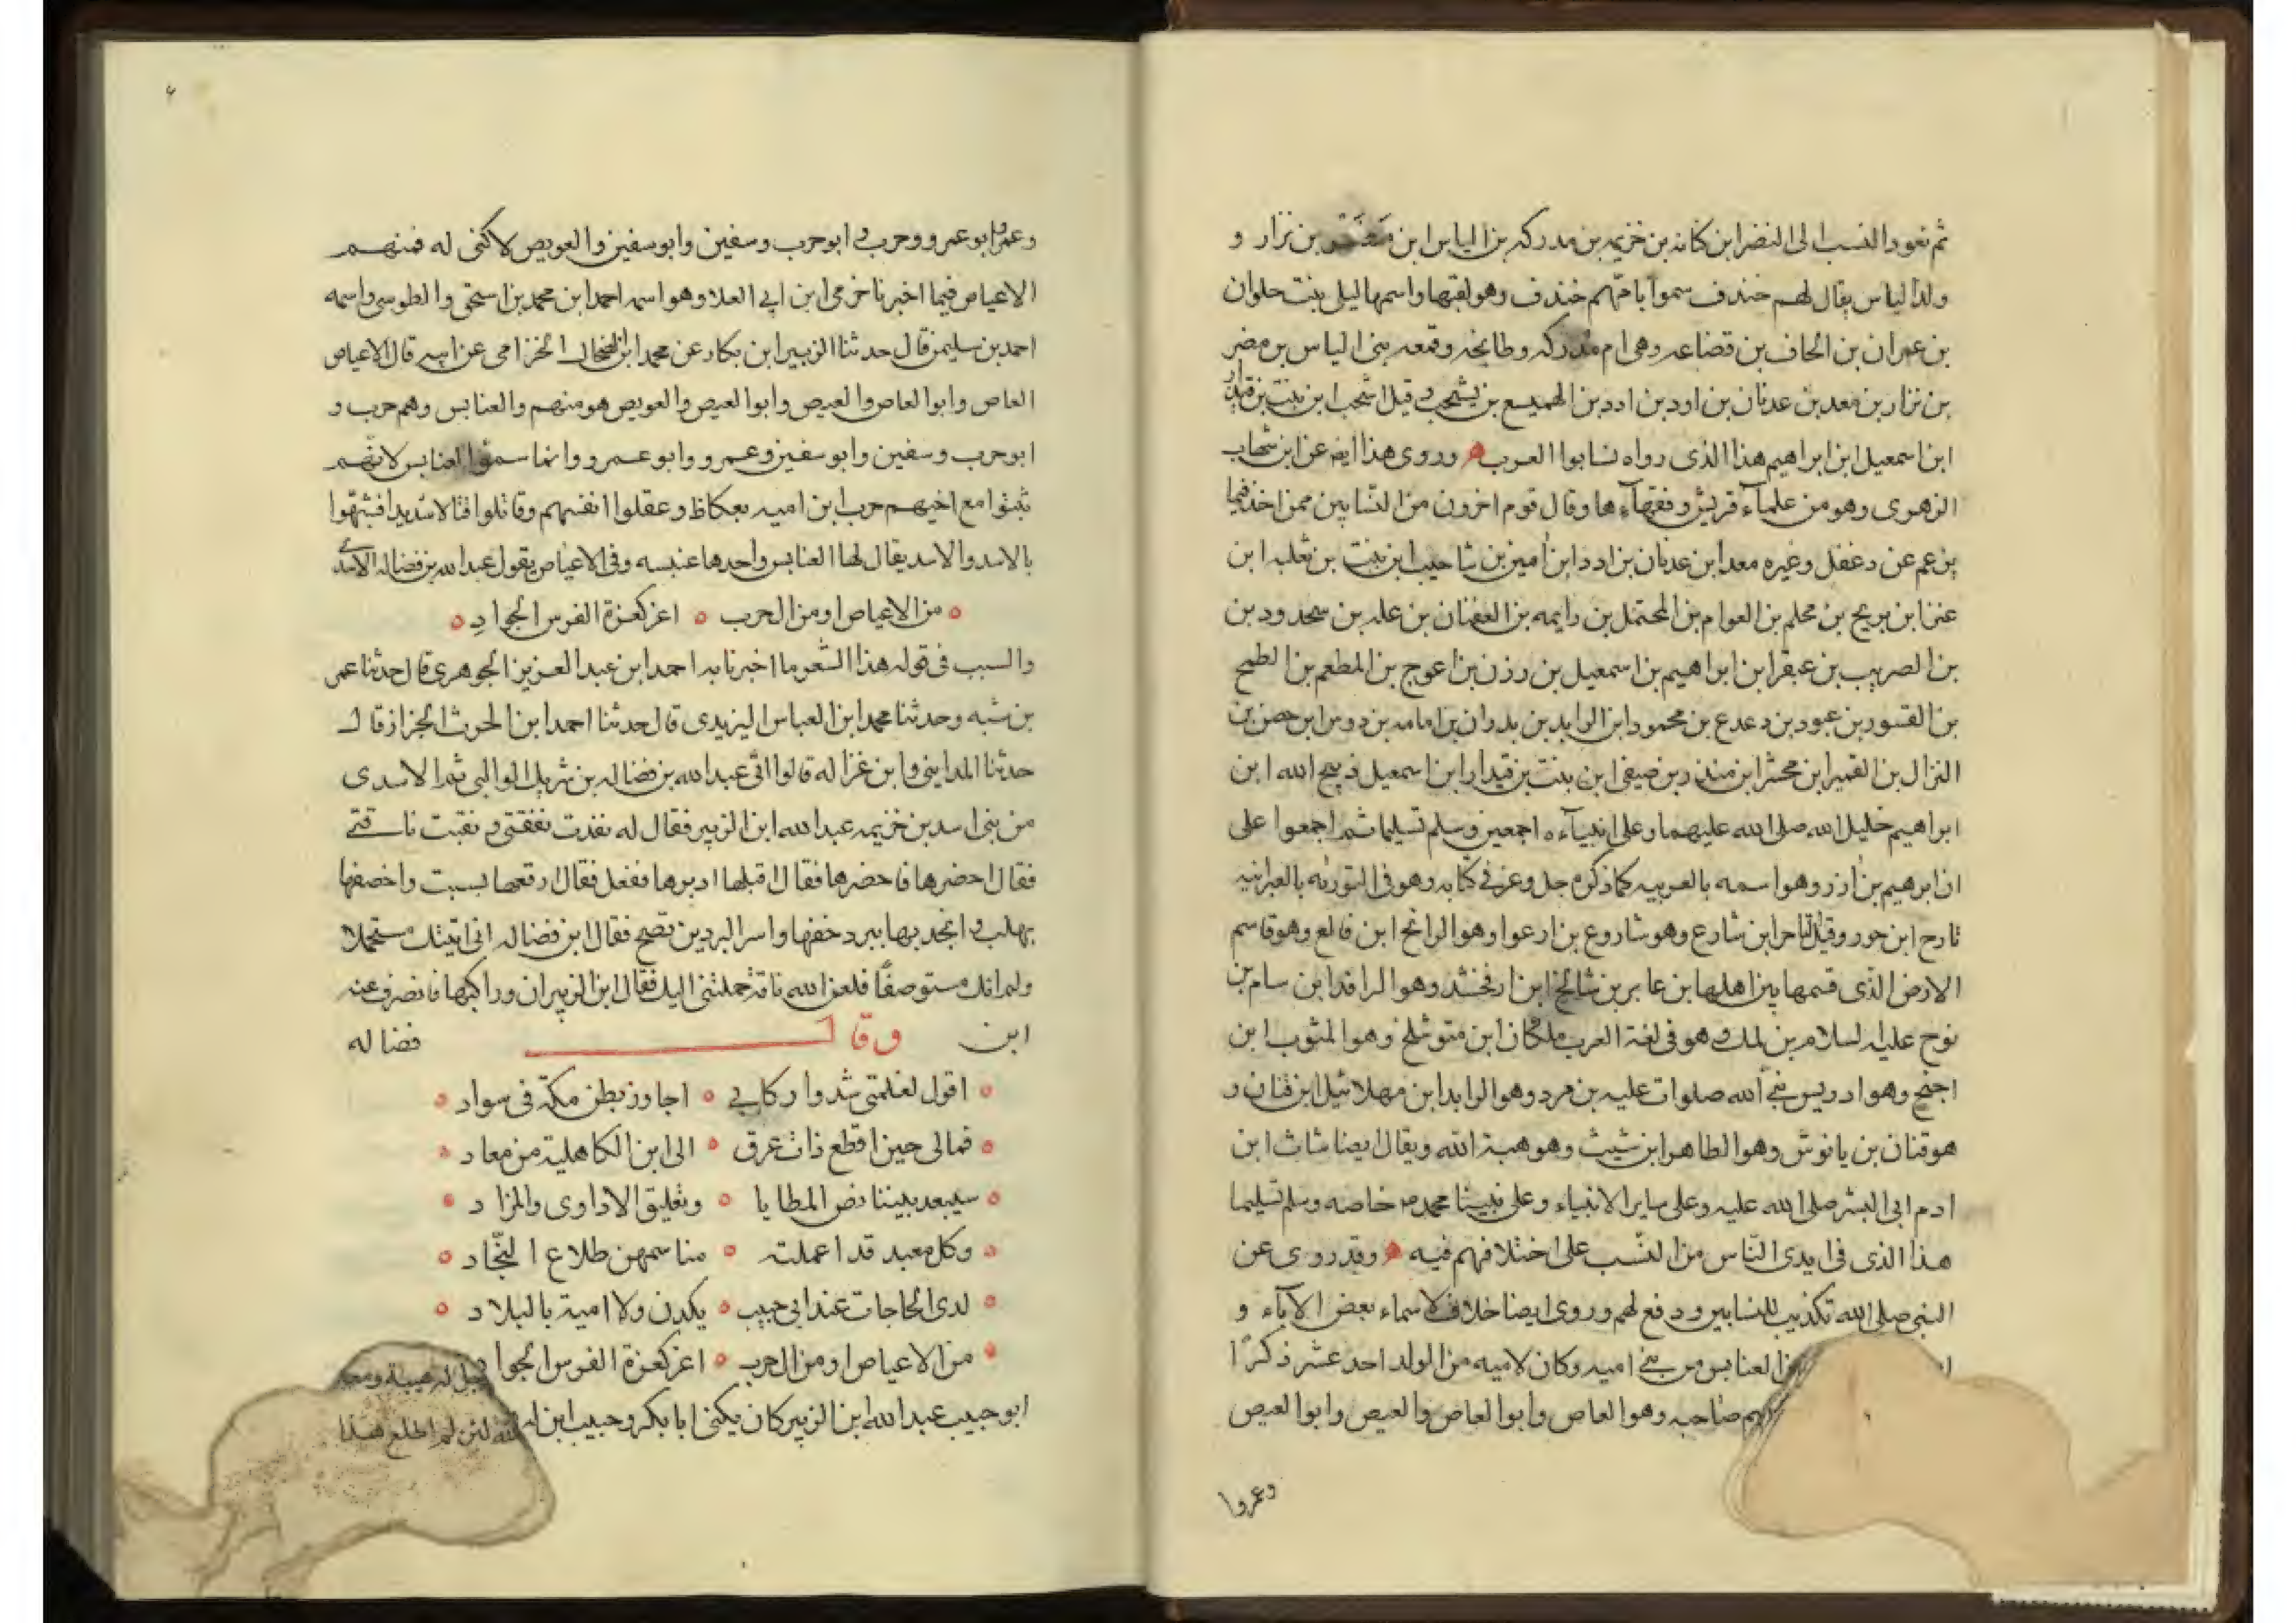 ثم نعود النسب الى النضر ابن كنانه بن خزيمه بن مدركه بن الياس ابن مضر بن نزار و
ولد الياس يقال لهم خندف سموا بامّهم خندف وهو لقبها واسمها ليلى بنت حلوان
بن عمران بن الحاف بن قضاعه وهى ام مدركه وطابخه وقمعه بنى الياس بن مضر
بن نزار بن معد بن عدنان بن اود بن ادد بن الهميسع بن يشجب و قيل اشجب ابن نبت بن قيدار
ابن اسمعيل ابن ابراهيم هذا الذى رواه نسابوا العرب وروى هذا ايضا عن ابن شهاب
الزهرى وهو من علمآء قريش وفقهآءها وقال قوم اخرون من النسّابين ممن اخذ فيما
يزعم عن دغفل وغيره معد ابن عدنان بن ادد ابن امين بن شاحيب ابن نبت بن ثعلبه ابن
عنز ابن بريح بن محلم بن العوام بن المحتمل بن رايمه بن العقنان بن علد بن سحدود بن
بن الضريب بن عبقر ابن ابراهيم بن اسمعيل بن رزن بن اعوج بن المطعم بن الطمح
بن القسور بن عبود بن دعدع بن محمود ابن الرابد بن بدران بن امامه بن دوس ابن حصن بن
النزال بن القمير ابن محشر ابن منذر بن صيفى ابن نبت بن قيدار ابن اسمعيل ذبيح الله ابن
ابراهيم خليل الله صلى الله عليهما وعلى انبيآءه اجمعين وسلم تسليما ثم اجمعوا على
ان ابرهيم بن ازر وهو اسمه بالعربيه كما ذكره جل وعز فى كتابه وهو فى التورية بالعبرانيه
تارح ابن حور وقيل الناحر ابن شارع وهو شاروع بن ارعوا وهو الرانح ابن فالع وهو قاسم
الارض الذى قسمها بين اهلها بن عابر بن شالخ ابن ارفخشد وهو الرافد ابن سام بن
نوح عليه السلام بن لمك وهو فى لغة العرب ملكان ابن متوشلخ وهو المثوب ابن
اخنخ وهو ادريس نبى الله صلوات عليه بن مرد وهو الرابد ابن مهلائيل ابن قنان و
هو قنان بن يانوش وهو الطاهر ابن شيث وهو هبة الله ويقال ايضا شاث ابن
ادم ابى البشر صلى الله عليه وعلى ساير الانبياء وعلى نبينا محمد خاصه وسلم تسليما
هذا الذى فى ايدى النّاس من النسّب على اختلافهم فيه وقد روى عن
النبى صلى الله تكذيب للنسابين ودفع لهم وروى ايضا خلاف لاسماء بعض الآباء و
العنابس من بنى اميه وكان لاميه من الولد احد عشر ذكرًا
صاحبه وهو العاص وابوا العاص والعيص وابوا العيص
وعمروا
وعمرو ابو عمرو وحرب و ابو حرب وسفين وابو سفين والعويص لا كنى له فمنهم
الاعياص فيما اخبرنا خرمى ابن ابى العلا وهو اسمه احمد ابن محمد بن اسحق والطوسى واسمه
احمد بن سليمن قال حدثنا الزبير ابن بكار عن محمد ابن الضحاك الخزامى عن ابيه قال الاعياص
العاص وابوا العاص والعيص وابوا العيص والعويص هو منهم والعنابس وهم حرب و
ابو حرب وسفين وابو سفين وعمرو وابو عمرو وانما سموا العنابس لانهم
ثبتوا مع اخيهم حرب ابن اميه بعكاظ وعقلوا انفسهم وقاتلوا قتالا شديدا فشبّهوا
بالاسد والاسد يقال لها العنابس واحدها عنبسه وفى الاعياص يقول عبد الله بن فضاله الاسدى
من الاعياص او من ال حرب ه اعز كعزة الفرس الجوادِ
والسبب فى قوله هذا الشعر ما اخبرنا به احمد ابن عبد العزيز الجوهرى قال حدثنا عمر
بن شبه وحدثنا محمد ابن العباس اليزيدى قال حدثنا احمد ابن الحرث الجزاز قال
حدثنا المداينى وابن غزاله قالوا اتى عبد الله بن فضاله بن شريك الوالبى ثم الاسدى
من بنى اسد بن خزيمه عبد الله ابن الزبير فقال له نفذت نفقتى و نقبت ناقتى
فقال احضرها فاحضرها فقال اقبلها ادبرها ففعل فقال ارقعها بسبت واخصفها
بهلب و انجد بها يبرد خفها واسر البردين تصح فقال ابن فضاله انى اتيتك مستحملا
ولم اتك مستوصفًا فلعن الله ناقة حملتنى اليك فقال ابن الزبير ان وراكبها فانصرف عنه
ابن فضاله وقال
اقول لغلمتى شدوا ركابى ه اجاوز بطن مكة فى سواد
فمالى حين اقطع ذات عرق ه الى ابن الكاهلية من معاد
سيبعد بيننا نص المطايا ه وتعليق الاداوى والمزاد
وكل معبد قد اعملته ه مناسمهن طلاع النجّاد
لدى الحاجات عند ابى حبيب ه يكدن ولا امية بالبلاد
من الاعياص او من ال حرب ه اعز كعزة الفرس الجواد
ابو حبيب عبد الله ابن الزبير كان يكنى ابا بكر وحبيب ابن